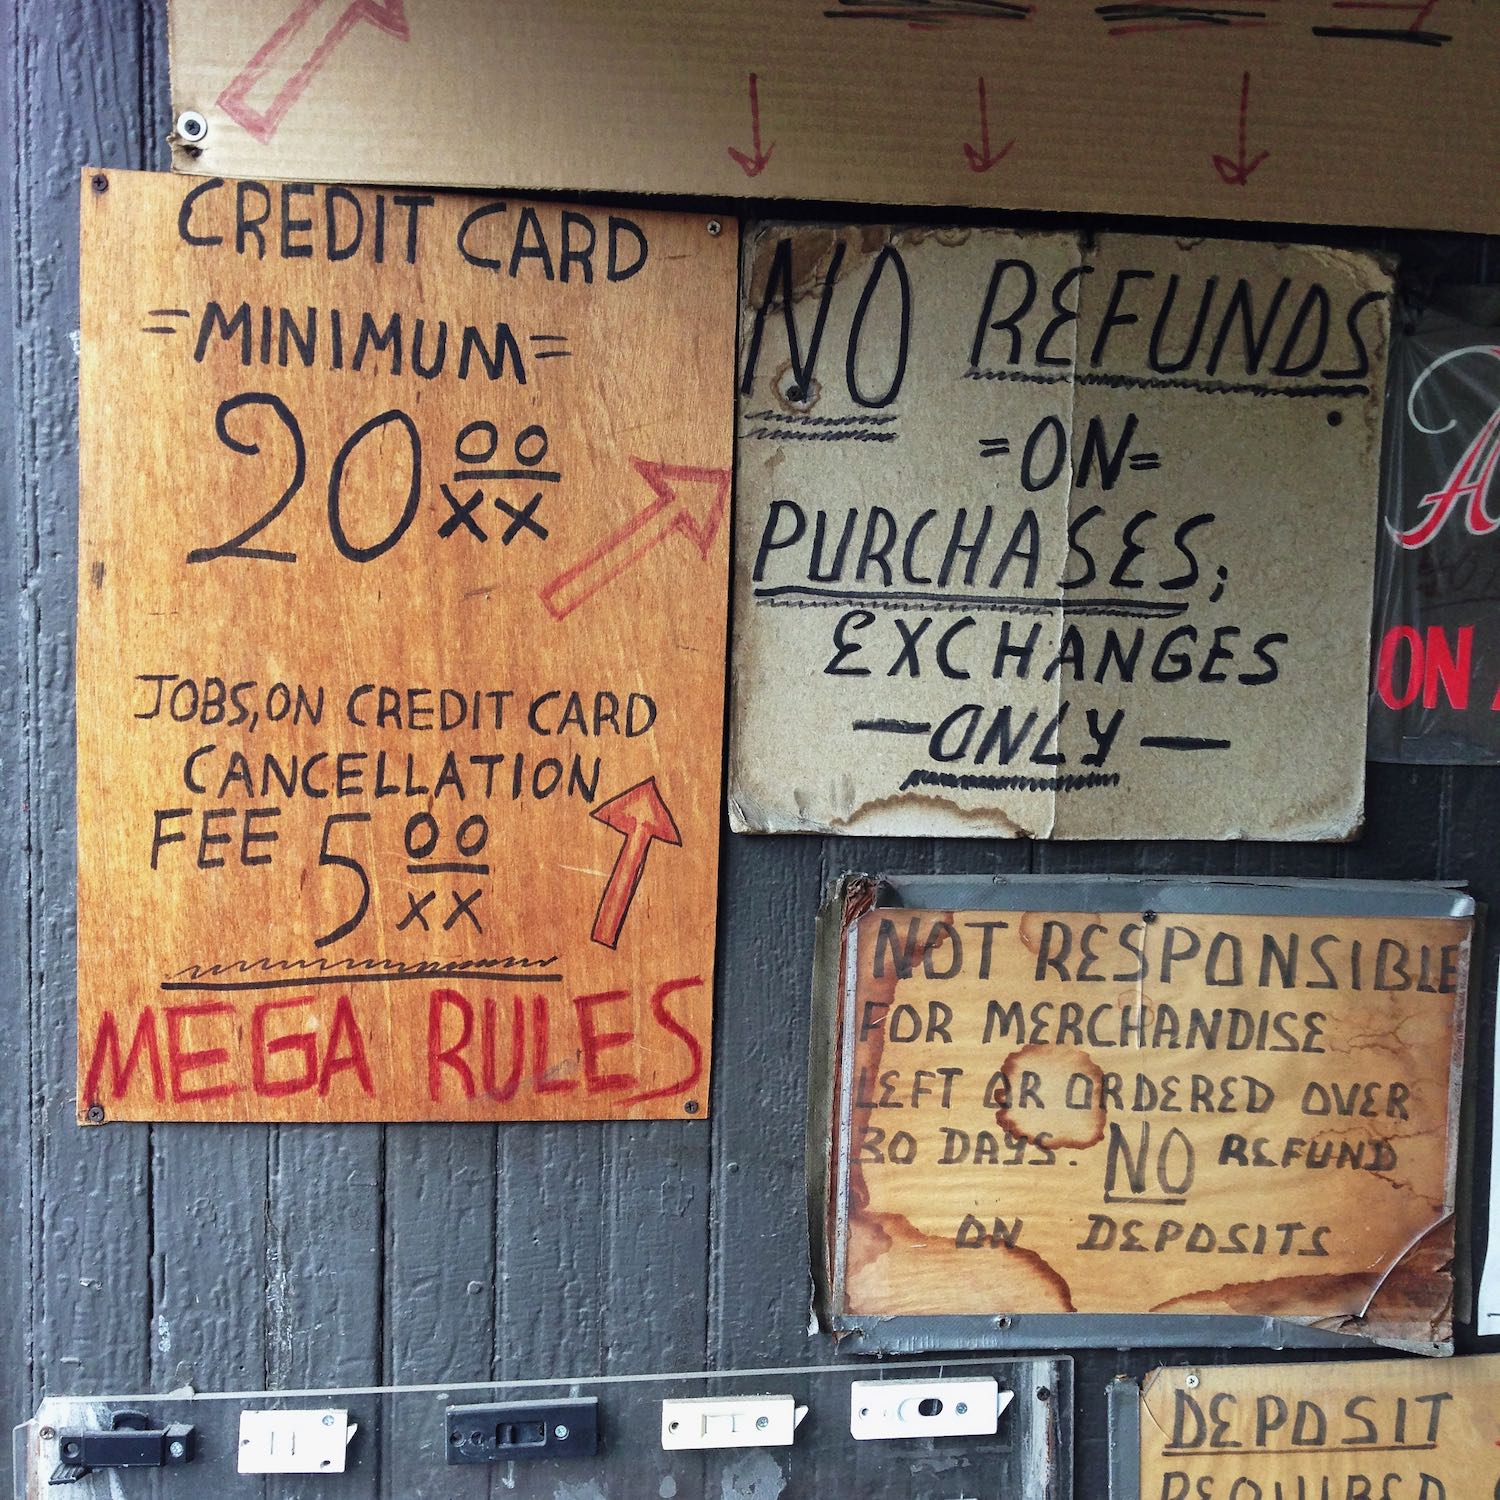 CREDIT CARD
=MINIMUM=
20 00/XX
JOBS, ON CREDIT CARD
CANCELLATION
FEE 5 00/XX
MEGA RULES
NO REFUNDS
=ON=
PURCHASES;
EXCHANGES
—ONLY—
ON
NOT RESPONSIBLE
FOR MERCHANDISE
LEFT OR ORDERED OVER
30 DAYS. NO REFUND
ON DEPOSITS
DEPOSIT
REQUIRED